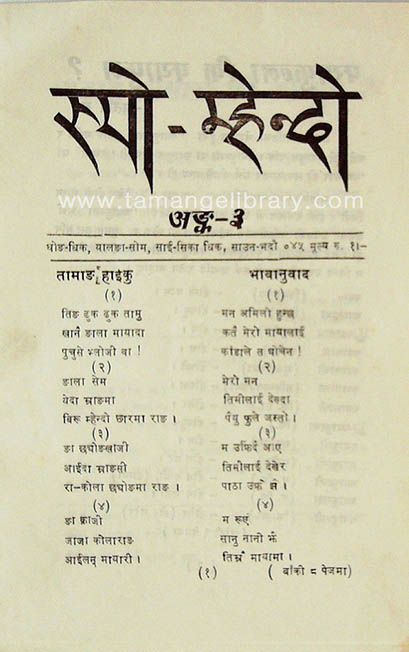 स्यो - म्हेन्दो
www.tamangelibrary.com
अङ्क - ३
घोङ-धिक, यालङा-सोम, साई-सिका धिक, साउन-भदौ ०४५ मूल्य रु. १।-
तामाङ हाइकु
(१)
तिङ ढुक ढुक तामु
खानै ङाला मायादा
पुचुसे भ्लोजी वा !
(२)
ङाला सेम
येदा म्राङमा
बिरू म्हेन्दो छारमा राङ ।
(३)
ङा छघोङखाजी
आईदा म्राङसी
रा-कोला छघोङमा राङ ।
(४)
ङा क्राजी
जाजा कोलाराङ
आईलन् मायारी ।
भावानुवाद
(१)
मन अमिलो हुन्छ
कतै मेरो मायालाई
काँडाले त घोचेन !
(२)
मेरो मन
तिमीलाई देख्दा
पैंयु फुले जस्तो ।
(३)
म उफ्रिंदै आएँ
तिमीलाई देखेर
पाठा उफ्रे झैं ।
(४)
म रूएँ
सानु नानी झैं
तिम्रै मायामा ।
(१)
( बाँकी ८ पेजमा )